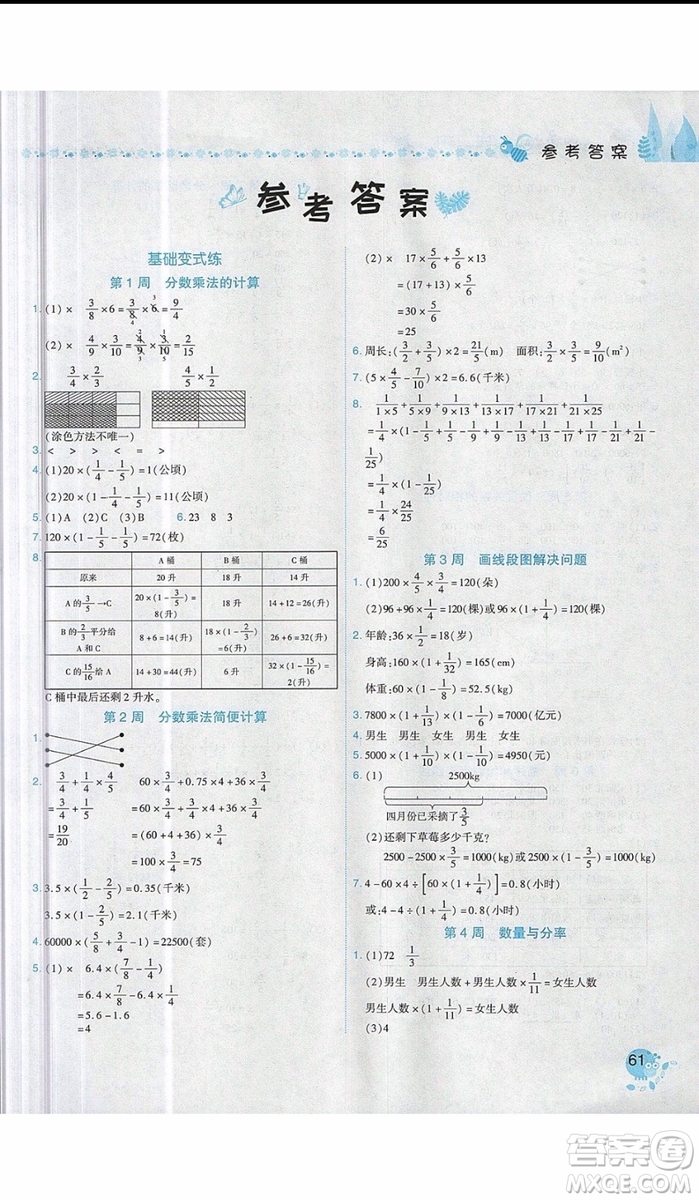 参考答案
参考答案
基础变式练
第1周 分数乘法的计算
1. (1) × 3/8×6=3/8×6=9/4
(2) × 4/9×3/10=4/9×3/10=2/15
2. 3/4×2/3 4/5×1/2
(涂色方法不唯一)
3. < > > <
4. (1)20×(1/4-1/5)=1(公顷)
(2)20×(1-1/4-1/5)=11(公顷)
5. (1)A (2)C 6. 23 8 3
7. 120×(1-1/5-1/5)=72(枚)
8. A桶 B桶 C桶
原来 20升 18升 14升
A的3/5→C 20×(1-3/5)=8(升) 18升 14+12=26(升)
B的2/3平分给A和C 8+6=14(升) 18×(1-2/3)=6(升) 26+6=32(升)
C的15/16给A 14+30=44(升) 6升 32×(1-15/16)=2(升)
C桶中最后还剩2升水。
第2周 分数乘法简便计算
1.
2. 3/4+1/4×4/5 60×3/4+0.75×4+36×3/4
=3/4+1/5 =60×3/4+4×3/4+36×3/4
=19/20 =(60+4+36)×3/4
=100×3/4=75
3. 3.5×(1/2-2/5)=0.35(千米)
3.5×(1-2/5)=2.1(千米)
4. 60000×(5/8+3/4-1)=22500(套)
5. (1) × 6.4×(7/8-1/4)
=6.4×7/8-6.4×1/4
=5.6-1.6
=4
(2) × 17×5/6+5/6×13
=(17+13)×5/6
=30×5/6
=25
6. 周长:(3/2+3/5)×2=21/5(m) 面积:3/2×3/5=9/10(m²)
7. (5×4/5-7/10)×2=6.6(千米)
8. 1/1×5+1/5×9+1/9×13+1/13×17+1/17×21+1/21×25
=1/4×(1-1/5+1/5-1/9+1/9-1/13+1/13-1/17+1/17-1/21+1/21-
1/25)
=1/4×(1-1/25)
=1/4×24/25
=6/25
第3周 画线段图解决问题
1. (1)200×4/5×3/4=120(朵)
(2)96+96×1/4=120(棵)或96×(1+1/4)=120(棵)
2. 年龄:36×1/2=18(岁)
身高:160×(1+1/32)=165(cm)
体重:60×(1-1/8)=52.5(kg)
3. 7800×(1+1/13)×(1-1/6)=7000(亿元)
4. 男生 男生 女生 男生 女生
5. 5000×(1+1/10)×(1-1/10)=4950(元)
6. (1)
2500kg
四月份已采摘了3/5
(2)还剩下草莓多少千克?
2500-2500×3/5=1000(kg)或2500×(1-3/5)=1000(kg)
7. 4-60×4÷[60×(1+1/4)]=0.8(小时)
或:4-4÷(1+1/4)=0.8(小时)
第4周 数量与分率
1. (1)72 1/3
(2)男生 男生人数+男生人数×1/11=女生人数或
男生人数×(1+1/11)=女生人数
(3)4
61
答案圈
MXQE.COM